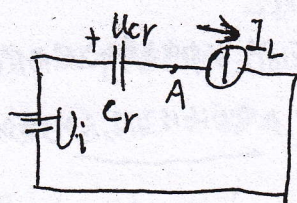 + Ucr
I_L
Cr
A
Ui